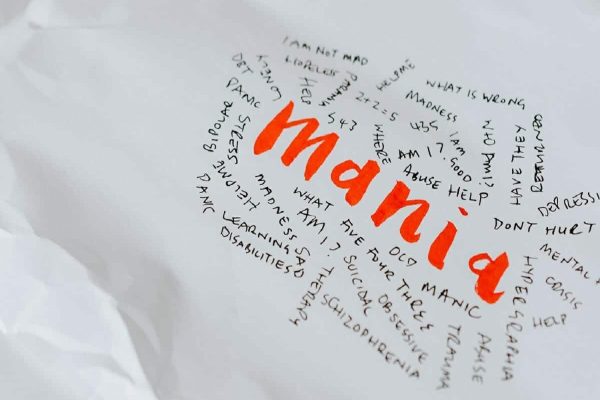 I AM NOT MAD
HOPELESS
LONELY
DET
PANIC
STRESS
BIPOLAR
HELP ME
PANIC
HELP
PARANOIA
HELP ME
2+2=5
543
WHAT IS WRONG
MADNESS
435
I AM
WHERE
AM I?
GOOD
WHO AM I?
HAVE THEY
ABUSE HELP
mania
DEPRESSI
DONT HURT
MENTAL
CRISIS
HELP
HYPERGRAPHIA
MADNESS
SAD
LEARNING
DISABILITIES
WHAT
AM I?
FIVE FOUR THREE
OLD
MANIC
THERAPY
SUICIDAL
OBSESSIVE
SCHIZOPHRENIA
TRAUMA
ABUSE